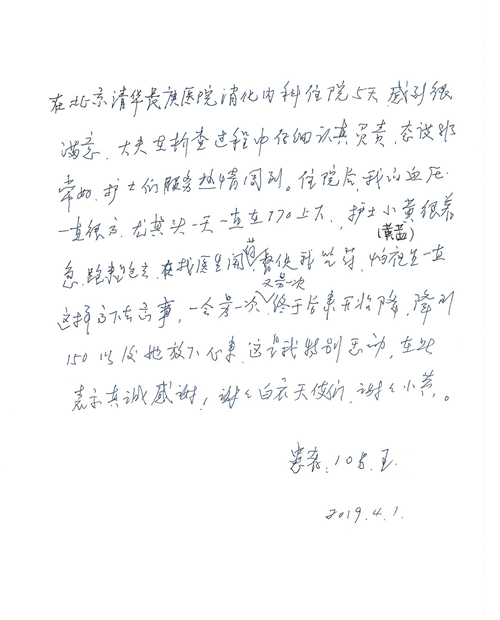 在北京清华长庚医院消化内科住院5天,感到很
满意。大夫在诊查过程中仔细认真负责,态度非
常好,护士们服务热情周到。住院后,我的血压
一直很高,尤其头一天一直在170上下,护士小黄很着
(黄茜)
急,跑来跑去,在找医生开药督促我吃药,怕夜里一直
这样高下去出事,一会量一次又量一次终于后来开始降,降到
150以后她放下心来,这是我特别感动,在此
表示真诚感谢!谢谢白衣天使们,谢谢小黄。
患者:10床 王
2019.4.1.